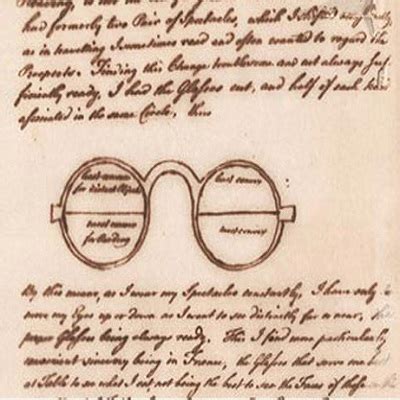 had formerly two Pair of Spectacles, which I shifted occasionally,
as in travelling I sometimes read and often wanted to regard the
Prospects. Finding this Change troublesome and not always suf-
ficiently ready, I had the Glasses cut, and half of each kind
associated in the same Circle, thus
least convex
for distant Objects
least convex
most convex
for Reading
most convex
By this means, as I wear my Spectacles constantly, I have only to
move my Eyes up or down as I want to see distinctly far or near, the
proper Glasses being always ready. This I find more particularly
convenient since my being in France, the Glasses that serve me best
at Table to see what I eat not being the best to see the Faces of those